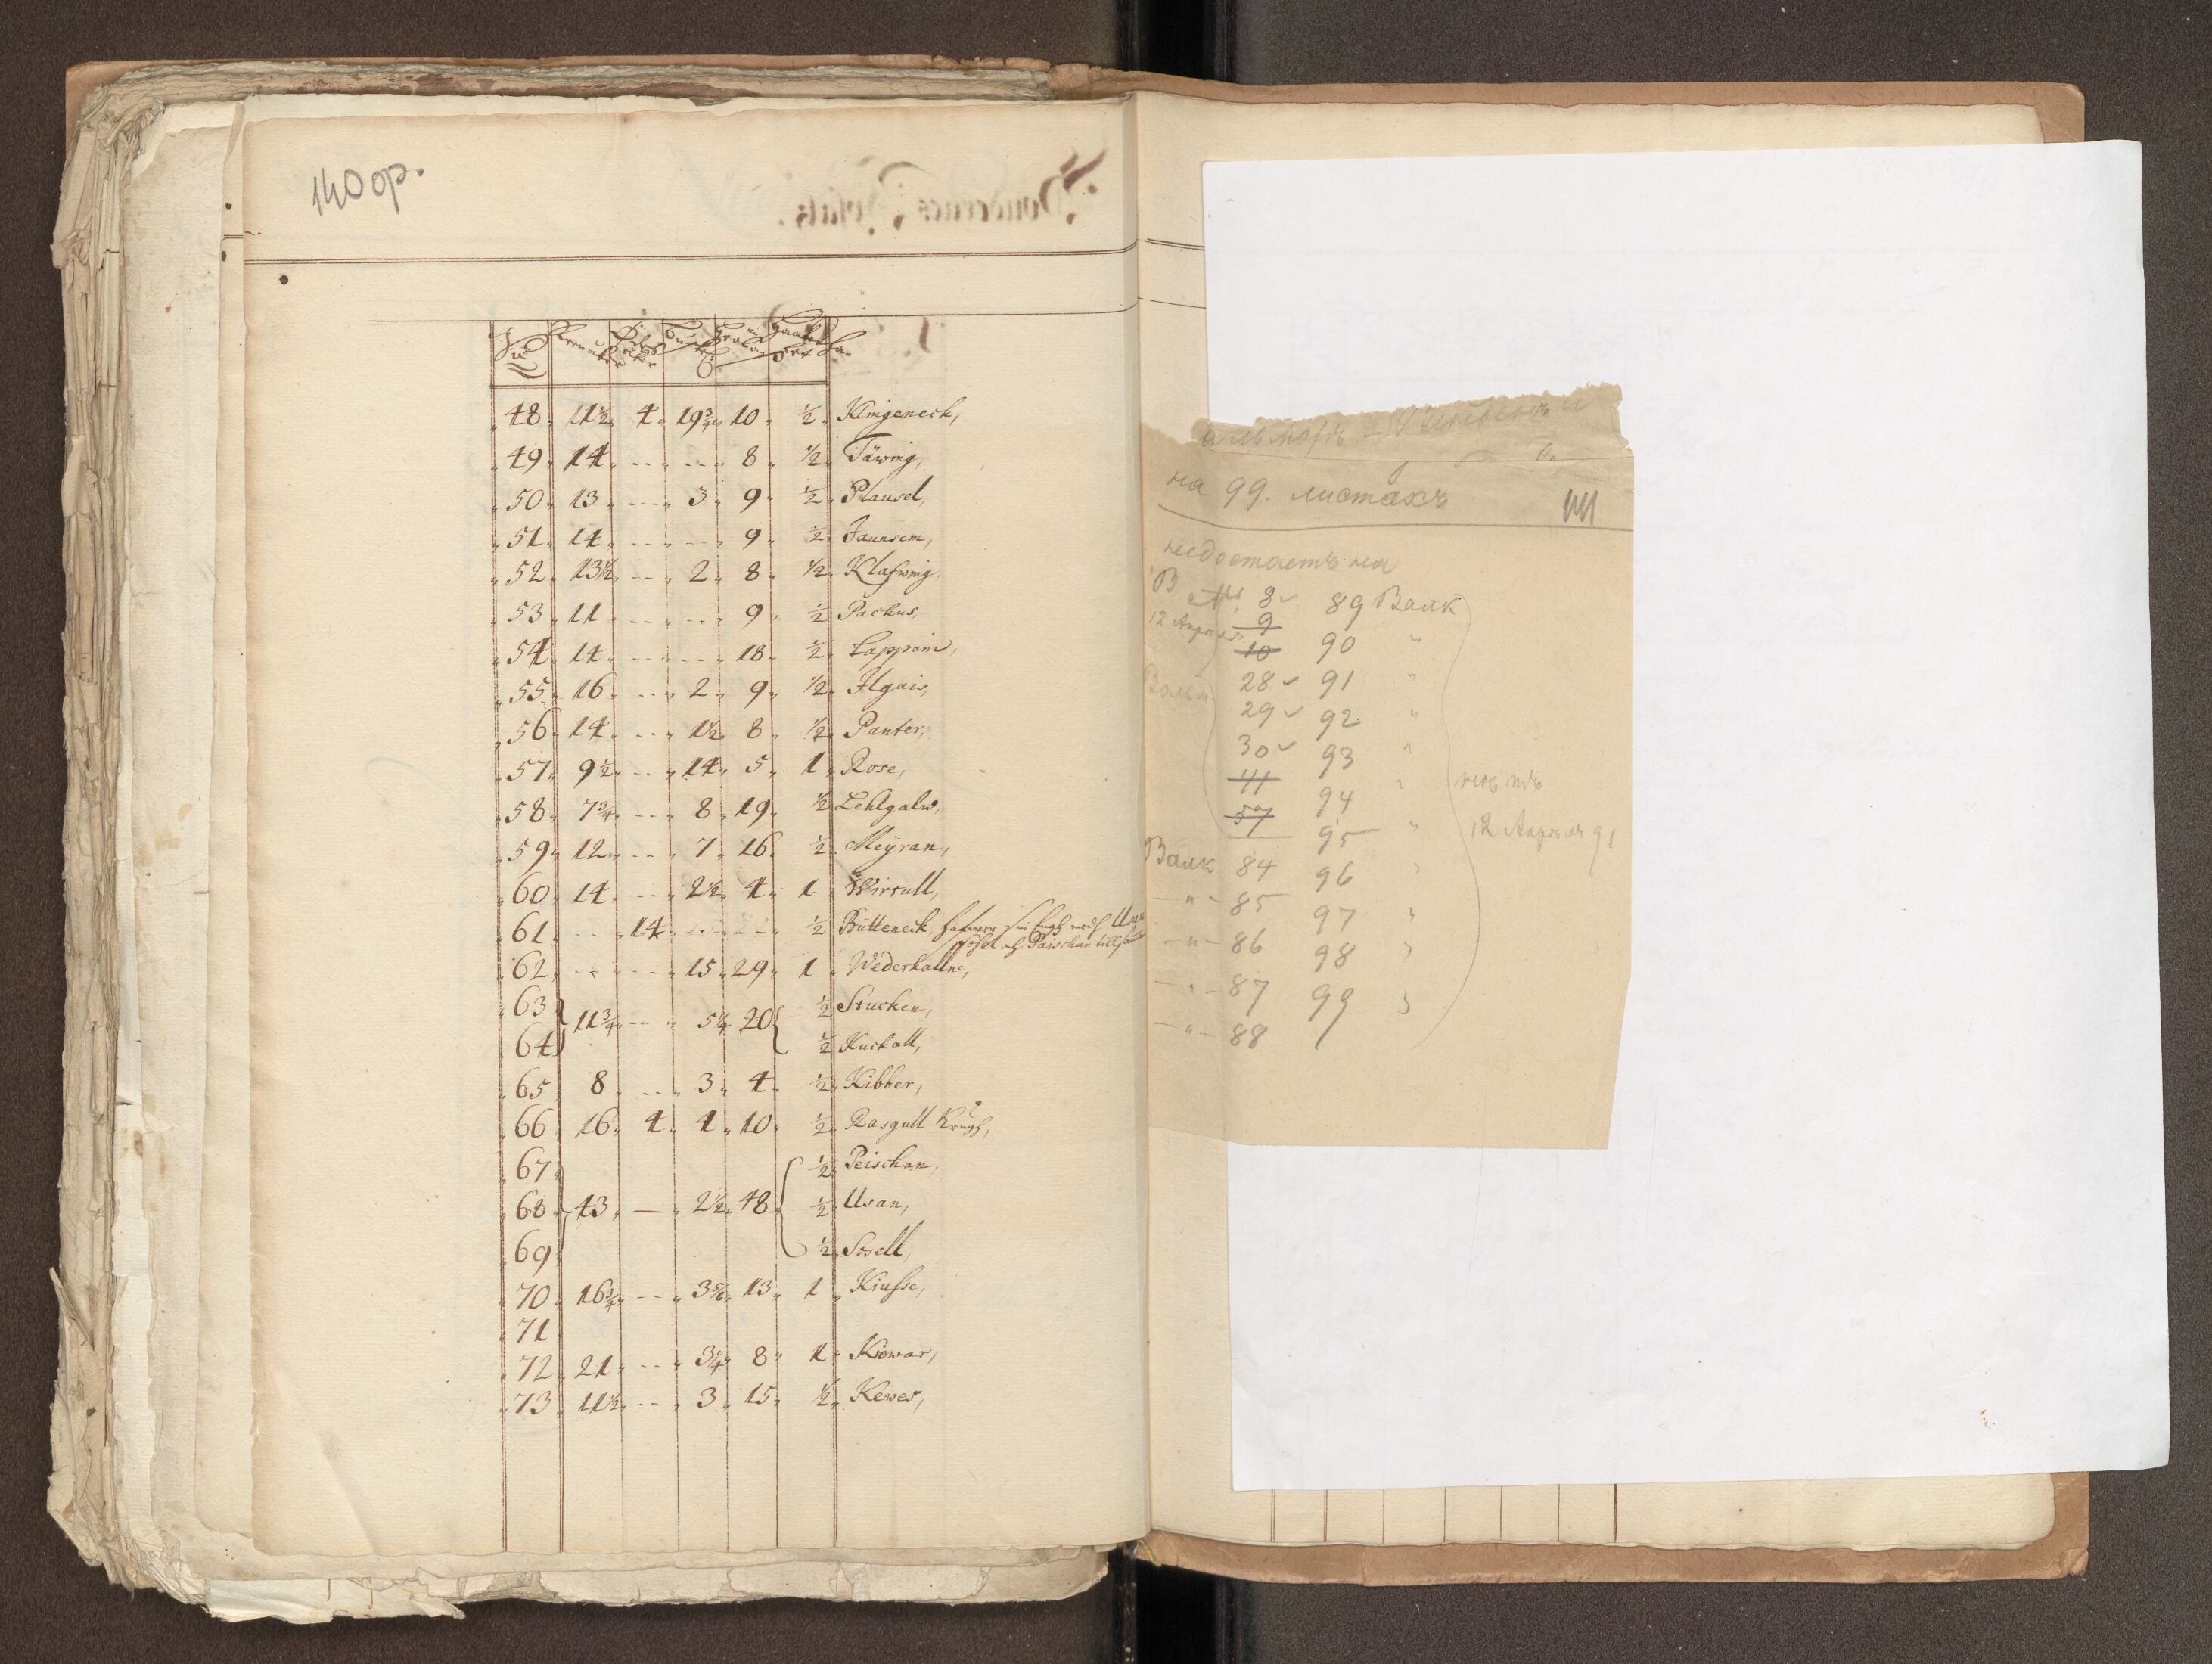 140 op.
48 11½ 4 19¾ 10 ½ Klingeneck,
49 14 - - 8 ½ Täwing,
50 13 - 3 9 ½ Plausel,
51 14 - - 9 ½ Jaunsem,
52 13½ - 2 8 ½ Klafwing,
53 11 - - 9 ½ Packus,
54 14 - - 18 ½ Lappain,
55 16 - 2 9 ½ Ilgais,
56 14 - 1½ 8 ½ Panter,
57 9½ - 14 5 1 Rose,
58 7¾ - 8 19 ½ Lehlgalw,
59 12 - 7 16 ½ Meÿran,
60 14 - 2½ 4 1 Wirsull,
61 - 14 - - ½ Bütteneck
och Paischan
62 - - 15 29 1 Wederkallne,
63 ½ Stucken,
11¾ - 5¼ 20
64 ½ Kuckall,
65 8 - 3 4 ½ Kibber,
66 16 4 4 10 ½ Rasgull Krugh,
67 ½ Peischan,
68 43 — 2½ 48 ½ Usan,
69 ½ Sosell,
70 16¾ - 3⅚ 13 1 Kiusse,
71
72 21 - 3¼ 8 1 Kiowar,
73 11½ - 3 15 ½ Kewer,
на 99. листахъ
недостаетъ на
В № 8 89 Валк
12 Апреля 9 90 "
10
28 91 "
29 92 "
30 93 "
41 94 "
57 95 " 12 Апреля 91
Валк 84 96 "
" 85 97 "
" 86 98 "
" 87 99 "
" 88